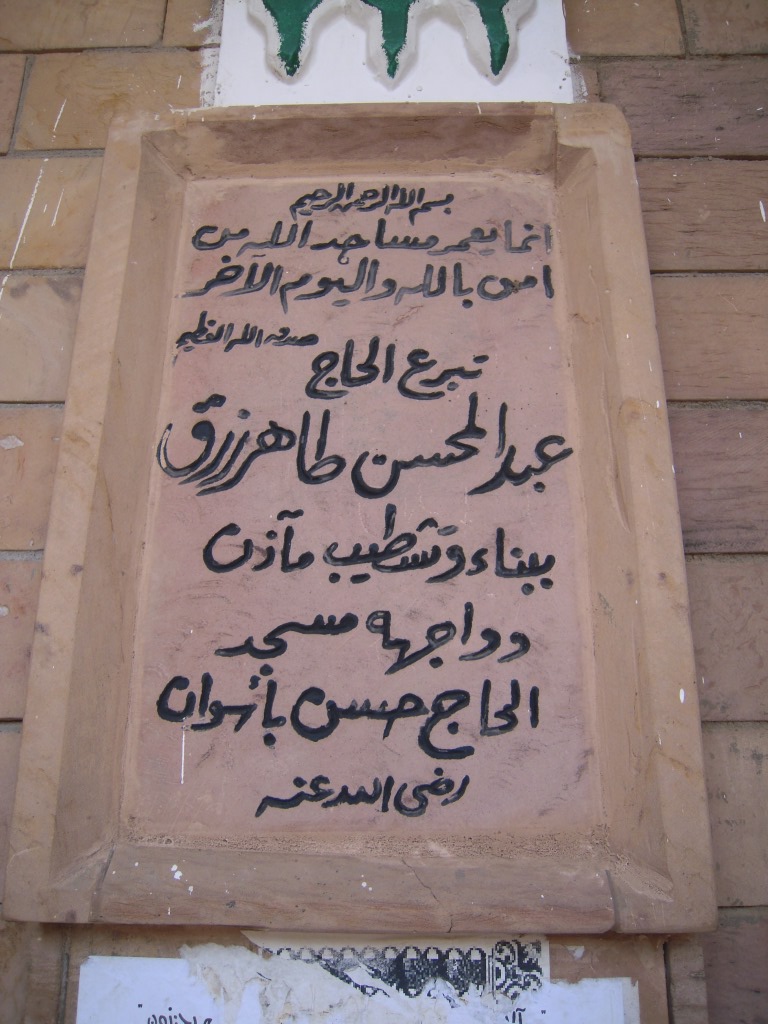 بسم الله الرحمن الرحيم
انما يعمر مساجد الله من
امن بالله واليوم الآخر
صدق الله العظيم
تبرع الحاج
عبد المحسن طاهر رزق
ببناء وتشطيب مآذن
وواجهه مسجد
الحاج حسن بأسوان
رضى الله عنه